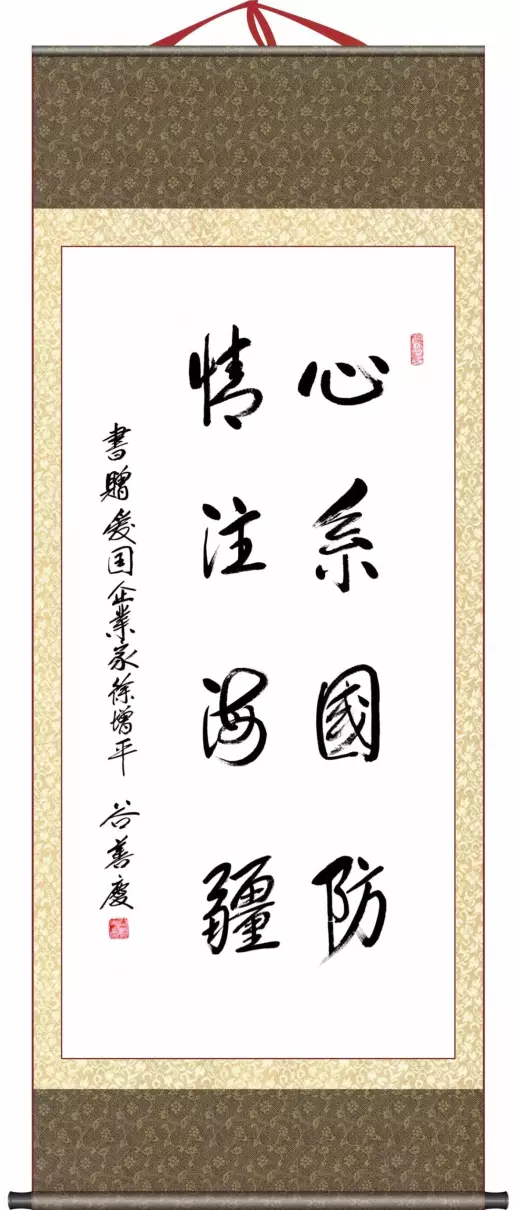 心系國防
情注海疆
書贈爱国企業家徐增平
谷善慶